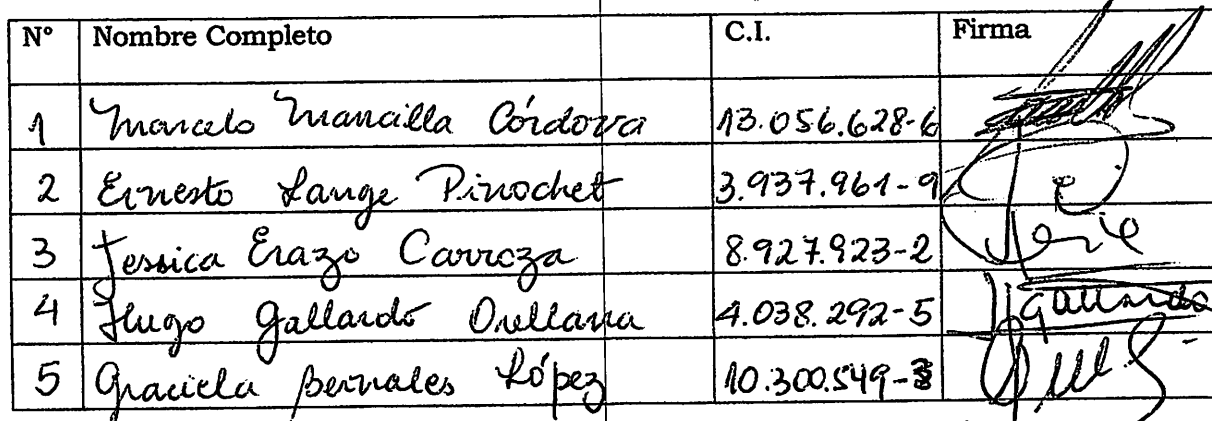 N° Nombre Completo C.I. Firma
1 Marcelo Mancilla Córdova 13.056.628-6
2 Ernesto Lange Pinochet 3.937.961-9
3 Jessica Erazo Carroza 8.927.923-2
4 Hugo Gallardo Orellana 4.038.292-5 Gallardo
5 Graciela Bernales López 10.300.549-3